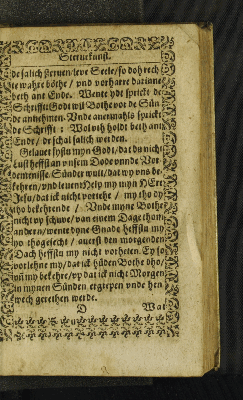 Sternekunst.
de salich steruen/leue Seele/so doh rech
te wahre böthe / vnd vorharre darinne
beth ant Ende. Wente ydt sprickt de
Schrifft: Godt wil Bothe vor de Sün
de annehmen. Vnde auermahls sprickt
de Schrifft: Wol vth holdt beth ant
Ende/ de schal salich werden.
Gelauet systu myn Godt/ dat du nicht
Lust heffst an vnsem Dode vnnde Vor
demenisse. Sünder wult/dat wy vns be
kehren/vnd leuen: Help my myn HErr
Jesu/dat ick nicht vertehe / my tho dy
tho bekehrende / Vnde myne Bothe
nicht vp schuue/van eynem Dage thom
andern/wente dyne Gnade heffstu my
tho thogesecht / auerst den morgenden
Dach heffstu my nicht vorheten. Ey so
vorlehne my/dat ick hüden Bothe dho/
vnd my bekehre/vp dat ick nicht Morgen
in mynen Sünden ergrepen vnde hen
wech gerethen werde.
D Wat